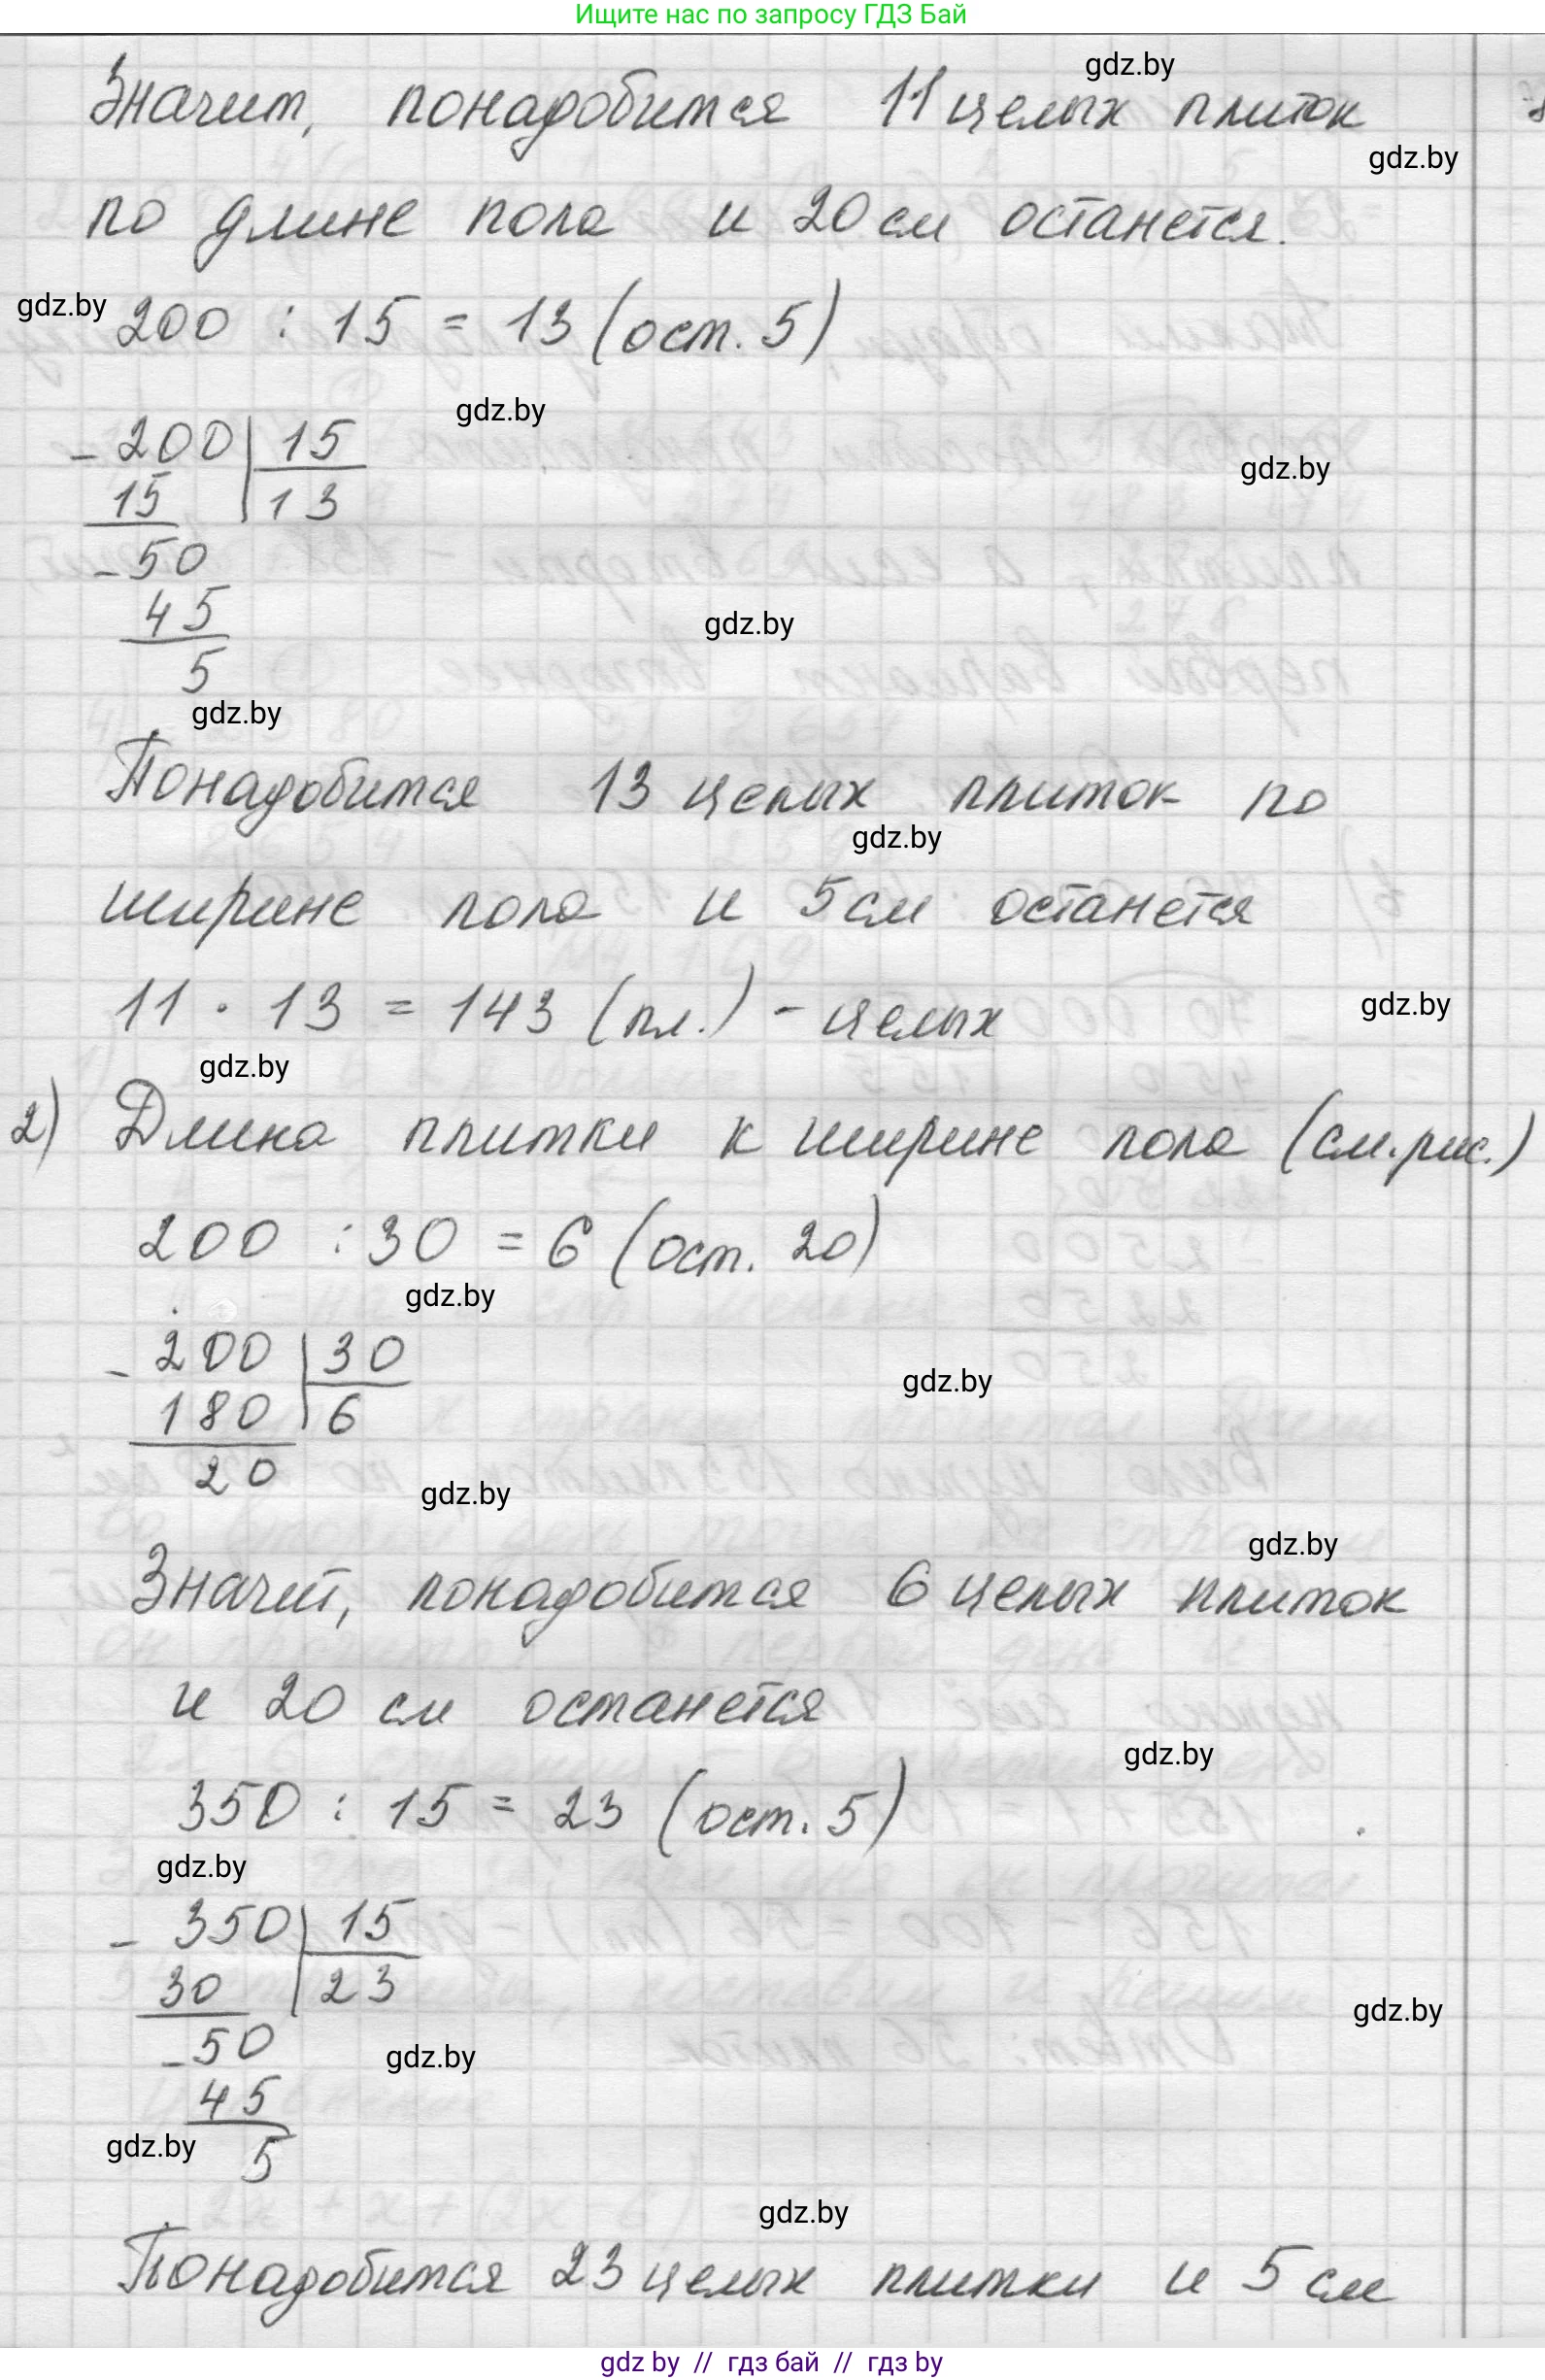 Ищите нас по запросу ГДЗ Бай
gdz.by
Значит, понадобится 11 целых плиток
gdz.by
по длине пола и 20 см останется.
gdz.by
200 : 15 = 13 (ост. 5)
gdz.by
- 200 | 15
gdz.by
15 | 13
- 50
45
gdz.by
5
gdz.by
Понадобится 13 целых плиток по
gdz.by
ширине пола и 5 см останется
11 · 13 = 143 (пл.) - целых
gdz.by
gdz.by
2) Длина плитки к ширине пола (см. рис.)
200 : 30 = 6 (ост. 20)
gdz.by
- 200 | 30
gdz.by
180 | 6
20
gdz.by
gdz.by
Значит, понадобится 6 целых плиток
и 20 см останется
gdz.by
350 : 15 = 23 (ост. 5)
gdz.by
- 350 | 15
30 | 23
gdz.by
- 50
gdz.by
45
gdz.by
5
gdz.by
Понадобится 23 целых плитки и 5 см
gdz by // гдз бай // гдз by